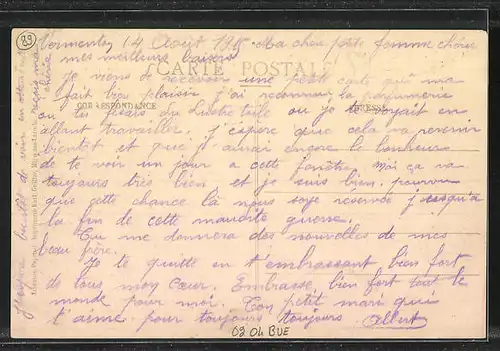 89
Vermenton 14 Août 1915 Ma chère petite femme chérie
mes meilleurs baisers
CARTE POSTALE
je viens de recevoir une petite carte qui me
fait bien plaisir j'ai reconnu la parfumerie
CORRESPONDANCE
ADRESSE
ou tu fesais du lustre toile ou je te voyait en
allant travailler. J'espère que cela va revenir
bientot et que j'aurai encore le bonheur
de te voir un jour a cette fenêtre Moi ça va
toujours très bien et je suis bien pourvu
que cette chance là nous soye réservée jusqu'a
la fin de cette maudite guerre.
Tu me donnera des nouvelles de mes
beau frère.
Je te quitte en t'embrassant bien fort
de tous mon Cœur. Embrasse bien fort tout le
monde pour moi. Ton petit mari qui
t'aime pour toujours toujours Albert
02 04 BUE
reçois ma
chérie